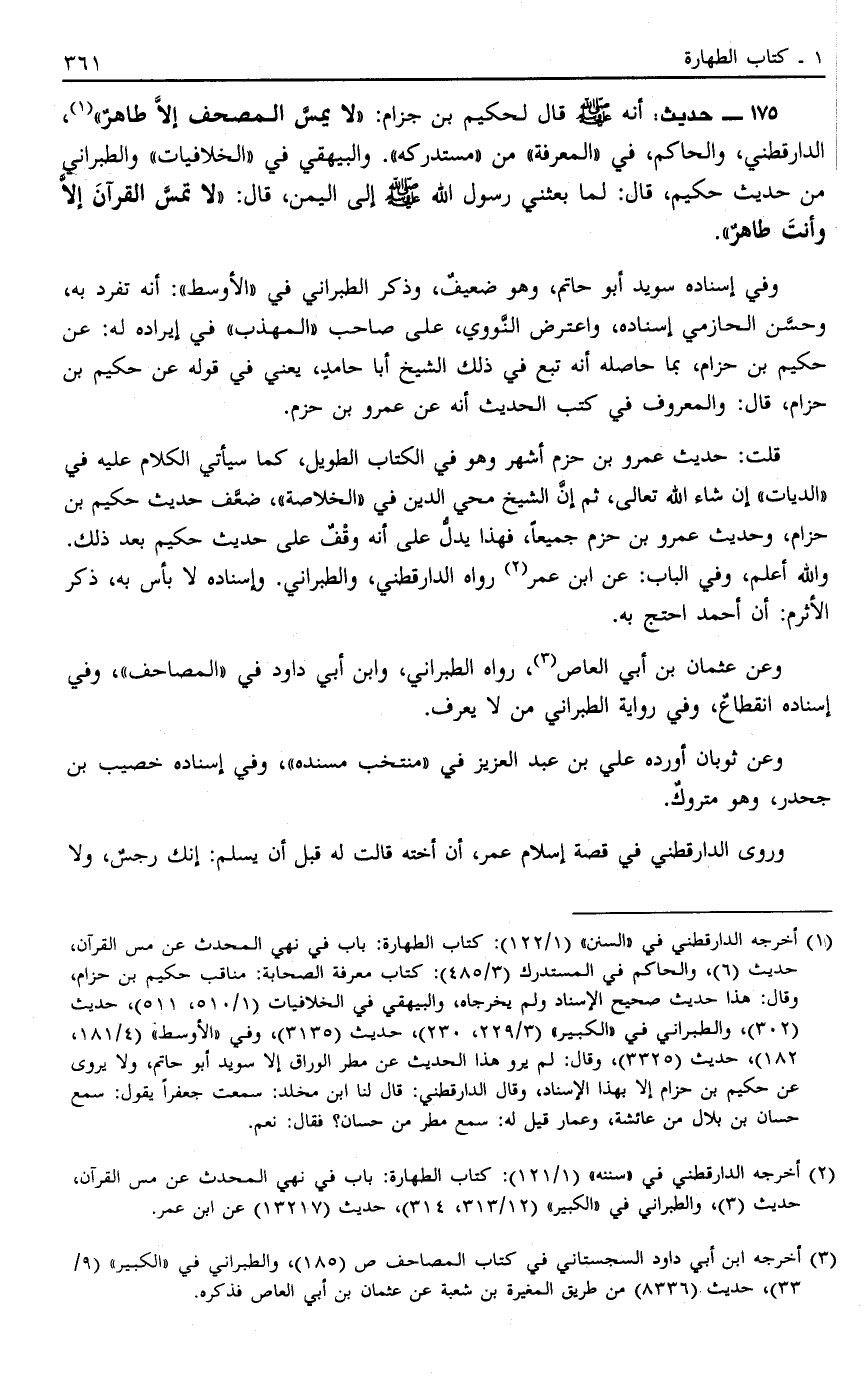 ١ ـ كتاب الطهارة ٣٦١
١٧٥ ـ حديث: أنه ﷺ قال لحكيم بن جزام: «لا يمسَّ المصحف إلاَّ طاهرٌ»(١)،
الدارقطني، والحاكم، في «المعرفة» من «مستدركه». والبيهقي في «الخلافيات» والطبراني
من حديث حكيم، قال: لما بعثني رسول الله ﷺ إلى اليمن، قال: «لا تمسَّ القرآنَ إلاَّ
وأنتَ طاهرٌ».
وفي إسناده سويد أبو حاتم، وهو ضعيفٌ، وذكر الطبراني في «الأوسط»: أنه تفرد به،
وحسَّن الحازمي إسناده، واعترض النَّووي، على صاحب «المهذب» في إيراده له: عن
حكيم بن حزام، بما حاصله أنه تبع في ذلك الشيخ أبا حامدٍ، يعني في قوله عن حكيم بن
حزام، قال: والمعروف في كتب الحديث أنه عن عمرو بن حزم.
قلت: حديث عمرو بن حزم أشهر وهو في الكتاب الطويل، كما سيأتي الكلام عليه في
«الديات» إن شاء الله تعالى، ثم إنَّ الشيخ محي الدين في «الخلاصة»، ضعَّف حديث حكيم بن
حزام، وحديث عمرو بن حزم جميعاً، فهذا يدلُّ على أنه وقْفٌ على حديث حكيم بعد ذلك.
والله أعلم، وفي الباب: عن ابن عمر(٢) رواه الدارقطني، والطبراني. وإسناده لا بأس به، ذكر
الأثرم: أن أحمد احتج به.
وعن عثمان بن أبي العاص(٣)، رواه الطبراني، وابن أبي داود في «المصاحف»، وفي
إسناده انقطاعٌ، وفي رواية الطبراني من لا يعرف.
وعن ثوبان أورده علي بن عبد العزيز في «منتخب مسنده»، وفي إسناده خصيب بن
جحدر، وهو متروكٌ.
وروى الدارقطني في قصة إسلام عمر، أن أخته قالت له قبل أن يسلم: إنك رجسٌ، ولا
(١) أخرجه الدارقطني في «السنن» (١٢٢/١): كتاب الطهارة: باب في نهي المحدث عن مس القرآن،
حديث (٦)، والحاكم في المستدرك (٤٨٥/٣): كتاب معرفة الصحابة: مناقب حكيم بن حزام،
وقال: هذا حديث صحيح الإسناد ولم يخرجاه، والبيهقي في الخلافيات (٥١٠/١، ٥١١)، حديث
(٣٠٢)، والطبراني في «الكبير» (٢٢٩/٣، ٢٣٠)، حديث (٣١٣٥)، وفي «الأوسط» (١٨١/٤،
١٨٢)، حديث (٣٣٢٥)، وقال: لم يرو هذا الحديث عن مطر الوراق إلا سويد أبو حاتم، ولا يروى
عن حكيم بن حزام إلا بهذا الإسناد، وقال الدارقطني: قال لنا ابن مخلد: سمعت جعفراً يقول: سمع
حسان بن بلال من عائشة، وعمار قيل له: سمع مطر من حسان؟ فقال: نعم.
(٢) أخرجه الدارقطني في «سننه» (١٢١/١): كتاب الطهارة: باب في نهي المحدث عن مس القرآن،
حديث (٣)، والطبراني في «الكبير» (٣١٣/١٢، ٣١٤)، حديث (١٣٢١٧) عن ابن عمر.
(٣) أخرجه ابن أبي داود السجستاني في كتاب المصاحف ص (١٨٥)، والطبراني في «الكبير» (٩/
٣٣)، حديث (٨٣٣٦) من طريق المغيرة بن شعبة عن عثمان بن أبي العاص فذكره.